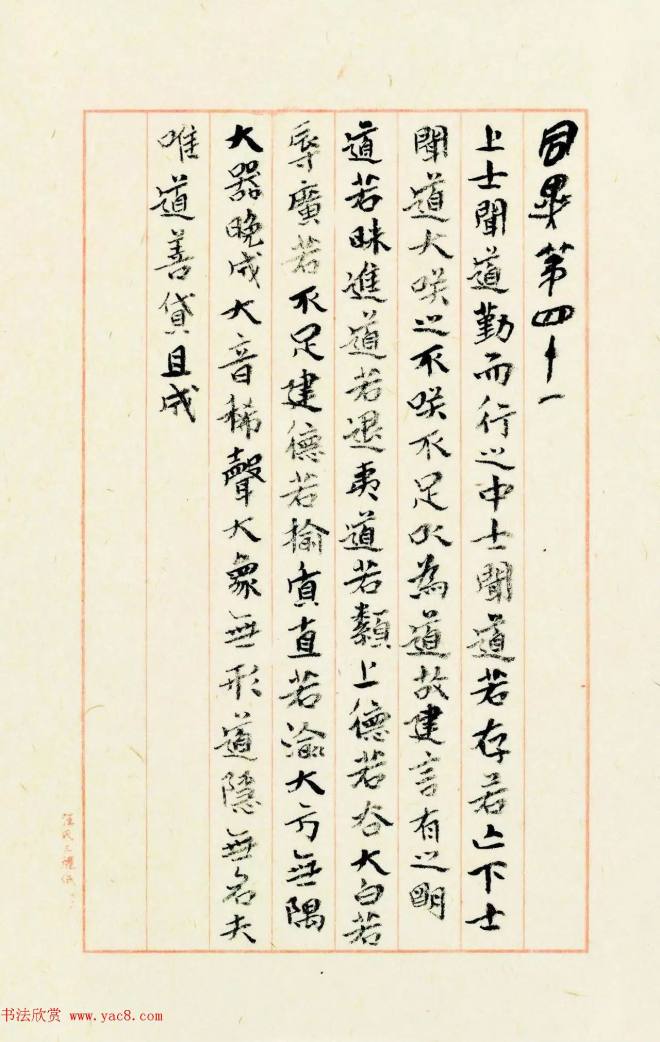 同異第四十一
上士聞道勤而行之中士聞道若存若亡下士
聞道大咲之不咲不足以為道故建言有之明
道若昧進道若退夷道若纇上德若谷大白若
辱廣若不足建德若揄質直若渝大方無隅
大器晚成大音稀聲大象無形道隱無名夫
唯道善貸且成
书法欣赏 www.yac8.com